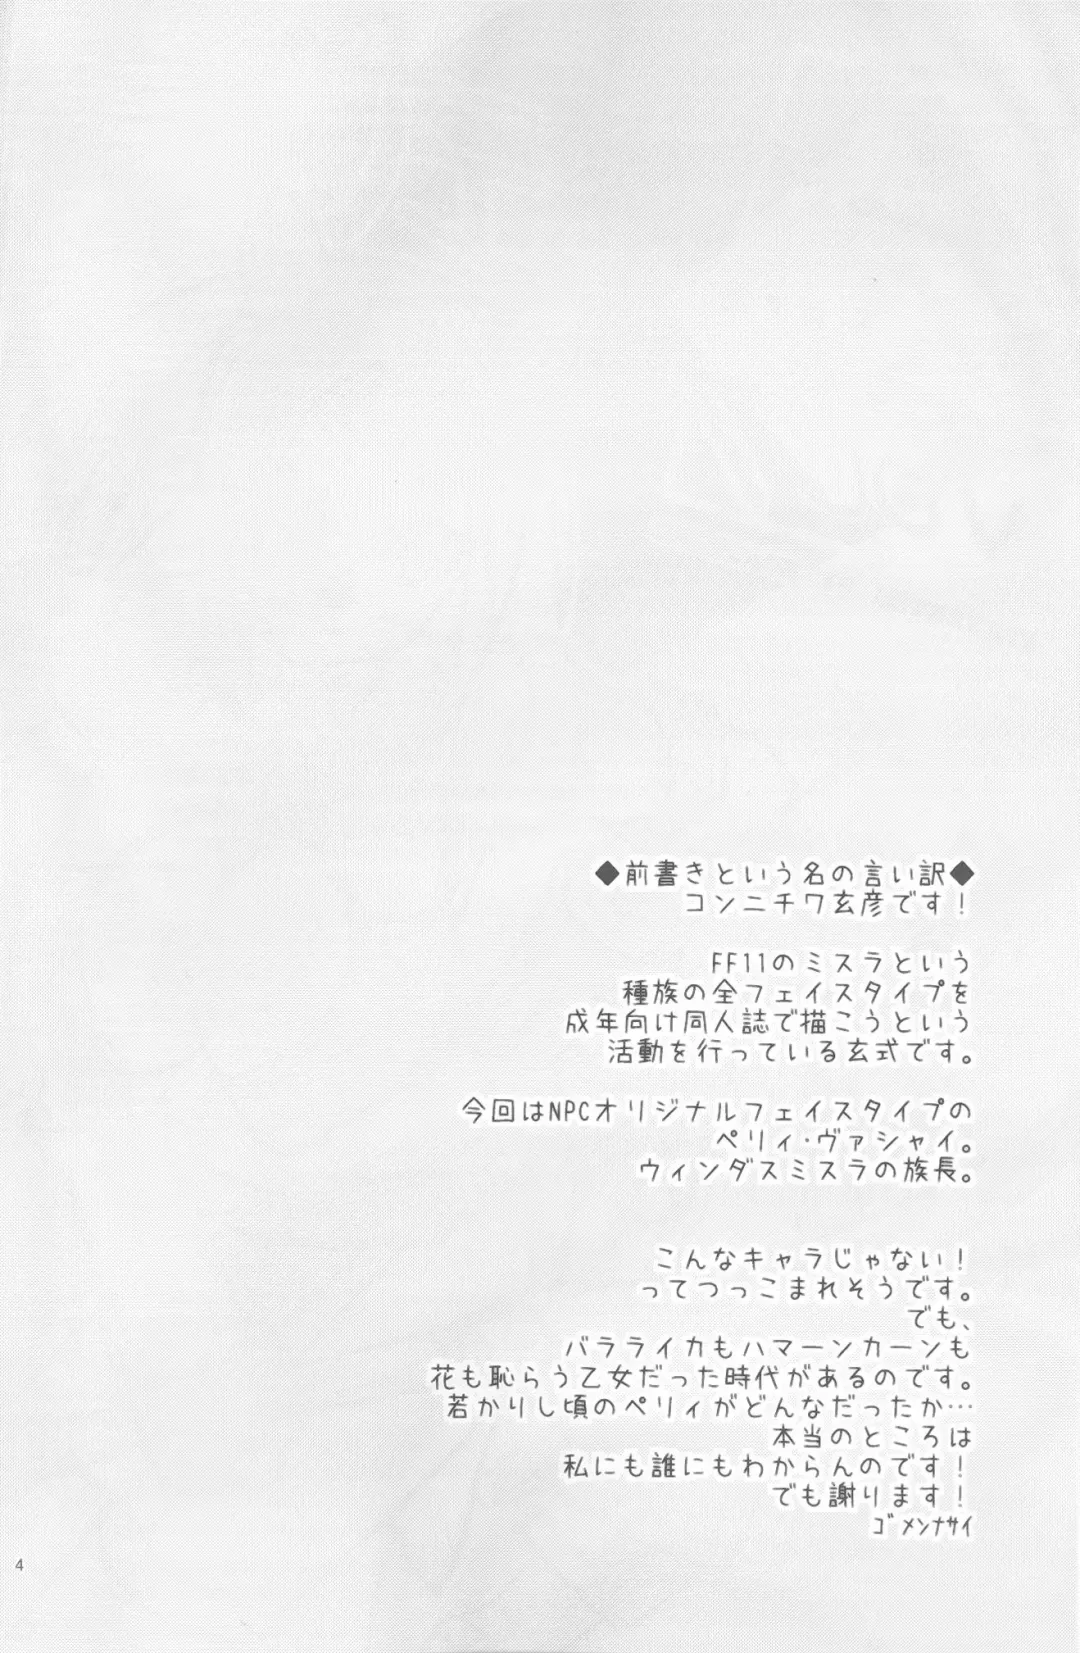 ◆前書きという名の言い訳◆
コンニチワ玄彦です！
FF11のミスラという
種族の全フェイスタイプを
成年向け同人誌で描こうという
活動を行っている玄式です。
今回はNPCオリジナルフェイスタイプの
ペリィ・ヴァシャイ。
ウィンダスミスラの族長。
こんなキャラじゃない！
ってつっこまれそうです。
でも、
バラライカもハマーンカーンも
花も恥らう乙女だった時代があるのです。
若かりし頃のペリィがどんなだったか…
本当のところは
私にも誰にもわからんのです！
でも謝ります！
ｺﾞﾒﾝﾅｻｲ
4